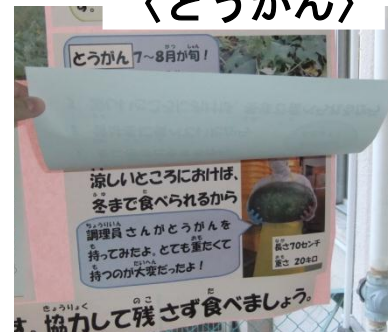 〈とうがん〉
す。
とうがん 7～8月が旬！
涼しいところにおけば、
冬まで食べられるから
調理員さんがとうがんを
持ってみたよ。とても重たくて
持つのが大変だったよ！
長さ70センチ
重さ 20キロ
す。協力して残さず食べましょう。